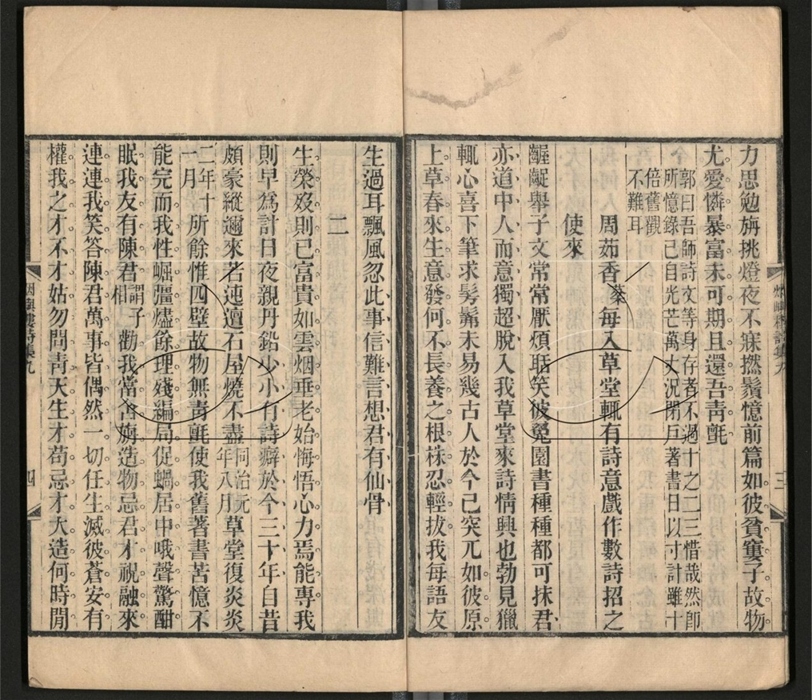 力思勉旃挑燈夜不寐撚鬚憶前篇如彼貧窶子故物
尤愛憐暴富未可期且還吾靑氈
郭曰吾師詩文等身存者不過十之二三惜哉然卽
所憶錄已自光芒萬丈況閉戶著書日以寸計雖十
倍舊觀
不難耳
周茹香棻每入草堂輒有詩意戲作數詩招之
使來
齷齪舉子文常常厭煩聒笑彼兔園書種種都可抹君
亦道中人而意獨超脫入我草堂來詩情興也勃見獵
輒心喜下筆求髣髴未易幾古人於今已突兀如彼原
上草春來生意發何不長養之根株忍輕拔我每語友
烟嶼樓詩集九
三
生過耳飄風忽此事信難言想君有仙骨
二
生榮歿則已富貴如雲烟垂老始悔悟心力焉能專我
則早爲計日夜親丹鉛少小有詩癖於今三十年自昔
頗豪縱邇來若迍邅石屋燒不盡同治元年八月草堂復炎炎
二年十一月所餘惟四壁故物無靑氈使我舊著書苦憶不
能完而我性崛彊燼餘理殘編局促蝸居中哦聲驚酣
眠我友有陳君謂子相勸我當舍旃造物忌君才視融來
連連我笑答陳君萬事皆偶然一切任生滅彼蒼安有
權我之才不才姑勿問靑天生才苟忌才大造何時閒
烟嶼樓詩集九
四